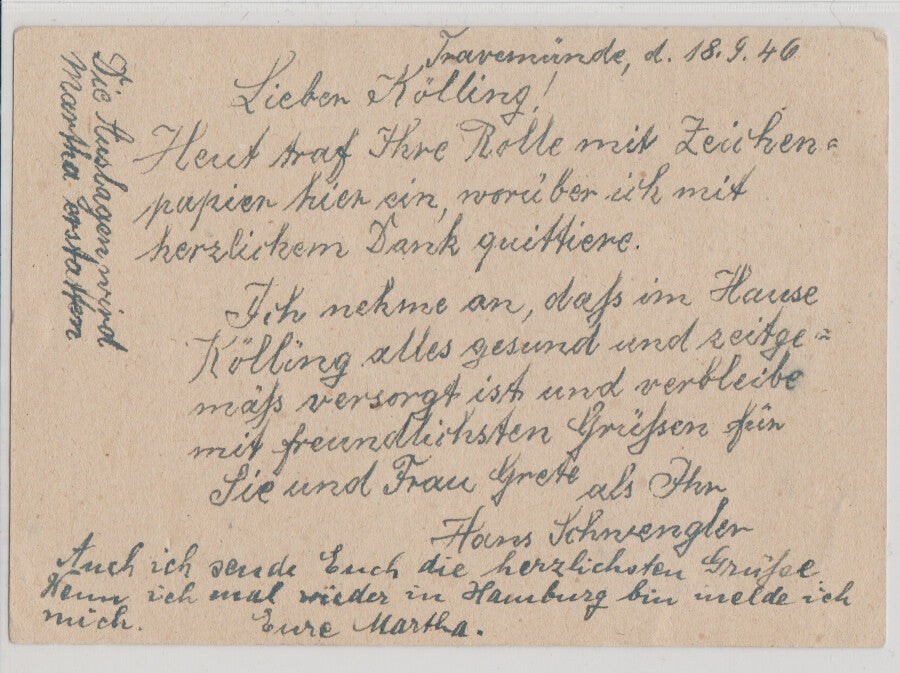 Travemünde, d. 18.9.46
Lieber Kölling!
Heut traf Ihre Rolle mit Zeichen=
papier hier ein, worüber ich mit
herzlichem Dank quittiere.
Ich nehme an, daß im Hause
Kölling alles gesund und zeitge=
mäß versorgt ist und verbleibe
mit freundlichsten Grüßen für
Sie und Frau Grete als Ihr
Hans Schwengler
Auch ich sende Euch die herzlichsten Grüße
Wenn ich mal wieder in Hamburg bin melde ich
mich. Eure Martha.
Die Auslagen wird
Martha erstatten